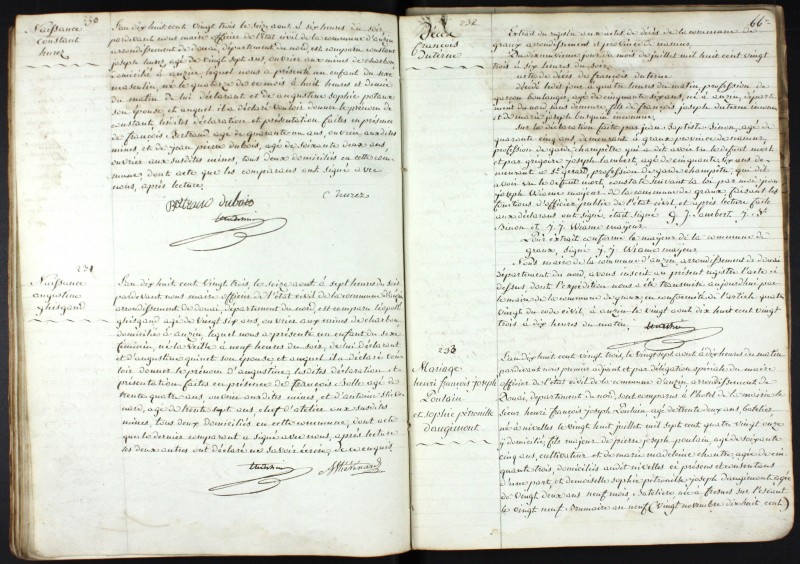 230
Naissance
constant
hurez
L'an dix huit cent vingt trois le seize août à six heures du soir,
pardevant nous maire officier de l'état civil de la commune d'anzin
arrondissement de douai, département du nord, est comparu constant
joseph hurez, agé de vingt sept ans, ouvrier aux mines de charbon,
domicilié à anzin, lequel nous a présenté un enfant du sexe
masculin, né le quatorze de ce mois à huit heures et demie
du matin de lui déclarant et de augustine sophie potaux
son épouse, et auquel il a déclaré vouloir donner le prénom de
constant, lesdites déclaration et présentation faites en présence
de françois Bertrand agé de quarante un ans, ouvrier auxdites
mines, et de jean pierre dubois, agé de soixante deux ans,
ouvrier aux susdites mines, tous deux domiciliés en cette com-
mune, dont acte que les comparans ont signé avec
nous, après lecture.
C hurez
dubois
231
Naissance
augustine
ghisgand
L'an dix huit cent vingt trois, le seize août à sept heures du soir
pardevant nous maire officier de l'état civil de la commune d'anzin
arrondissement de douai, département du nord, est comparu léopold
ghisgand agé de vingt six ans, ouvrier aux mines de charbon
domicilié à anzin, lequel nous a présenté un enfant du sexe
féminin, né la veille à neuf heures du soir, de lui déclarant
et d'augustine quinet son épouse et auquel il a déclaré vou-
loir donner le prénom d'augustine, lesdites déclaration et
présentation faites en présence de françois Bolle agé de
trente quatre ans, ouvrier auxdites mines, et d'antoine
agé de trente sept ans chef d'atelier aux susdites
mines, tous deux domiciliés en cette commune, dont acte
que le dernier comparant a signé avec nous, après lecture
les deux autres ont déclaré ne savoir écrire, de ce enquis
232
66
Décès
françois
Duterne
Extrait du registre aux actes de décès de la commune de
graux arrondissement et province de namur.
Du deuxième jour du mois de juillet mil huit cent vingt
trois à six heures du soir.
acte de décès de françois duterne
décédé ledit jour à quatre heures du matin, profession de
garçon boulanger, agé de cinquante six ans, né à anzin, départe-
ment du nord et demeuré, fils de françois joseph duterne
et de marie joseph busquin
Sur la déclaration faite par jean Baptiste Binon, agé de
quarante cinq ans, demeurant à graux province de namur,
profession de garde champêtre qui a dit avoir vu le défunt mort
et par grégoire joseph lambert, agé de cinquante six ans de-
meurant à St gérard profession de garde champêtre, qui dit
avoir vu le défunt mort, constaté suivant la loi par moi jean
joseph Wiame mayeur de la commune de graux, faisant les
fonctions d'officier public de l'état civil, et après lecture faite
aux déclarans ont signé, était signé g. J. lambert J. Bte
Binon et J. J. Wiame mayeur.
Pour extrait conforme le mayeur de la commune de
graux, signé J. J. Wiame mayeur
Nous maire de la commune d'anzin, arrondissement de douai
département du nord, avons inscrit au présent registre l'acte ci
dessus, dont l'expédition nous a été transmise aujourd'hui par
le maire de la commune de graux en conformité de l'article quatre
vingt du code civil, à anzin le vingt août dix huit cent vingt
trois à dix heures du matin.
233
Mariage
henri françois joseph
Poulain
et sophie pétronille
daugimont
L'an dix huit cent vingt trois, le vingt sept août à dix heures du matin
pardevant nous premier adjoint et par délégation spéciale du maire
officier de l'état civil de la commune d'anzin, arrondissement de
Douai, département du nord, sont comparus à l'hotel de la mairie le
sieur henri françois joseph Poulain, agé de trente deux ans, batelier
né à nivelles le vingt huit juillet mil sept cent quatre vingt onze
y domicilié, fils majeur de pierre joseph poulain, agé de soixante
cinq ans, cultivateur et de marie madeleine chantre, agée de cin-
quante trois, domiciliés audit nivelles ci présens et consentans
d'une part, et demoiselle sophie pétronille joseph daugimont, agée
de vingt deux ans neuf mois, Batelière née à fresnes sur l'escaut
le vingt neuf Brumaire an neuf (vingt novembre dix huit cent)